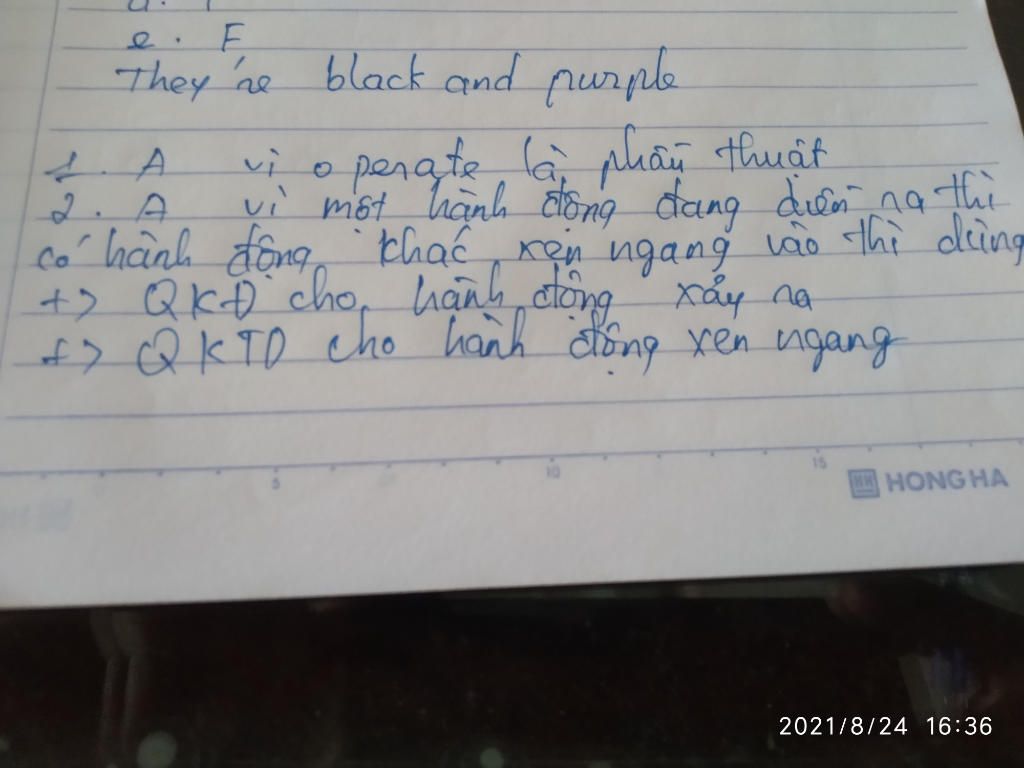 e. F
They're black and purple
1. A vì operate là phẫu thuật
2. A vì một hành động đang diễn ra thì
có hành động khác xẹn ngang vào thì dùng
+> QKĐ cho hành động xảy ra
+> QKTD cho hành động xen ngang
5 10 15
HONG HA
2021/8/24 16:36